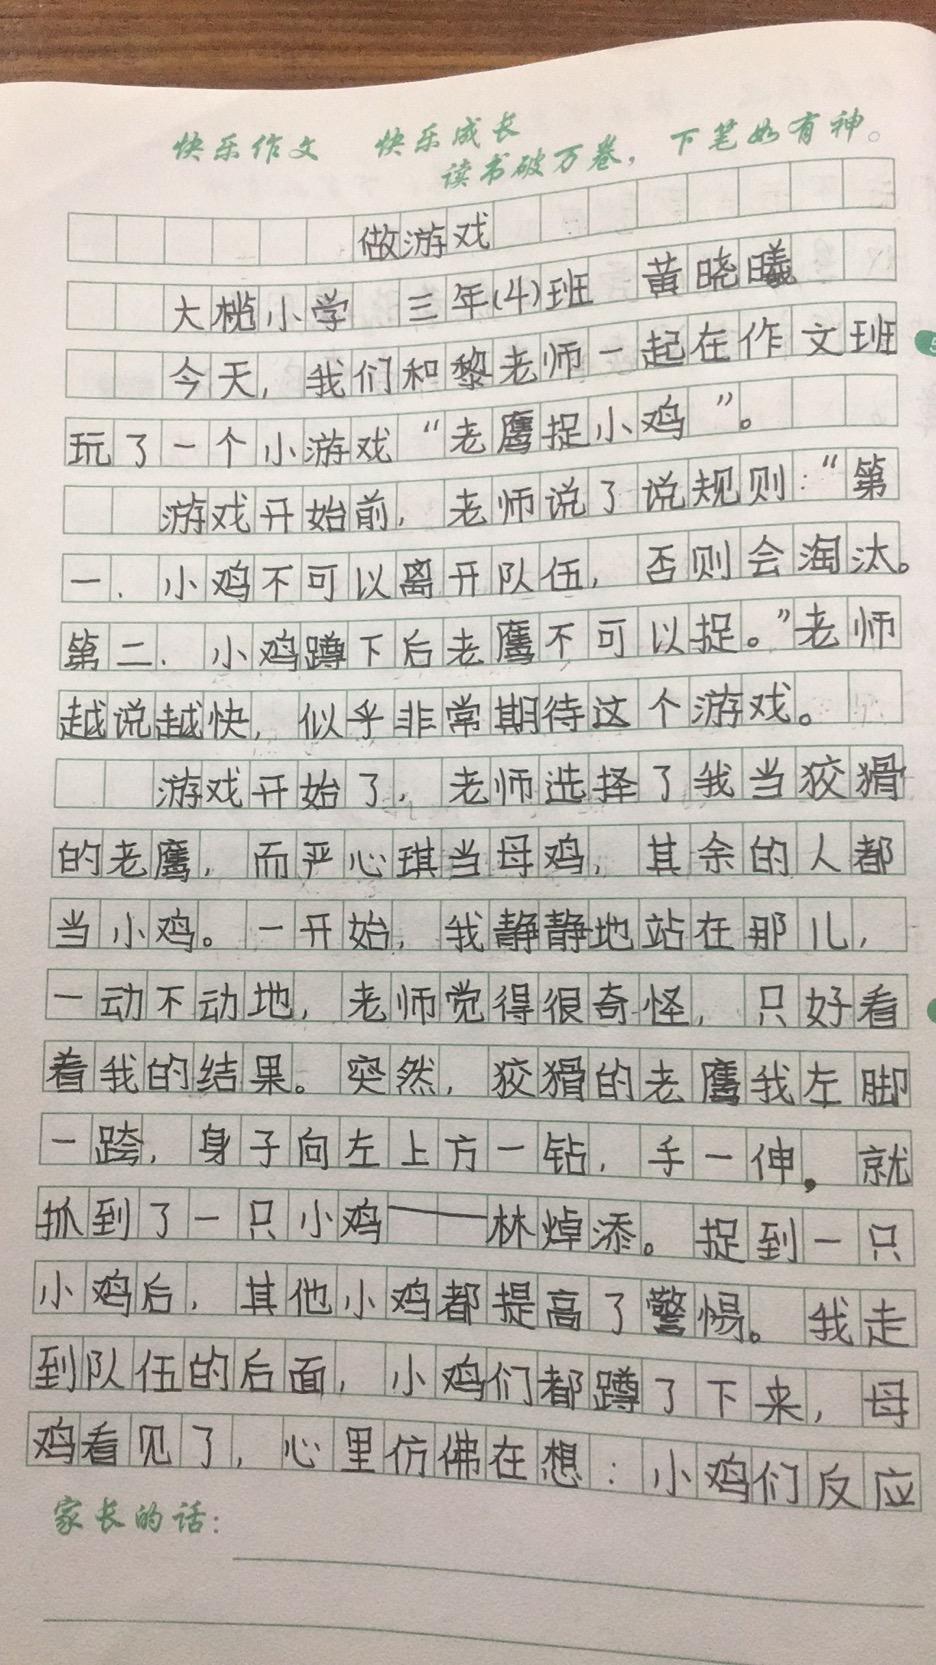 快乐作文 快乐成长
读书破万卷，下笔如有神。
做游戏
大榄小学 三年(4)班 黄晓曦
今天，我们和黎老师一起在作文班
玩了一个小游戏“老鹰捉小鸡”。
游戏开始前，老师说了说规则：“第
一．小鸡不可以离开队伍，否则会淘汰。
第二．小鸡蹲下后老鹰不可以捉。”老师
越说越快，似乎非常期待这个游戏。
游戏开始了，老师选择了我当狡猾
的老鹰，而严心琪当母鸡，其余的人都
当小鸡。一开始，我静静地站在那儿，
一动不动地，老师觉得很奇怪，只好看
着我的结果。突然，狡猾的老鹰我左脚
一跨，身子向左上方一钻，手一伸，就
抓到了一只小鸡——林焯添。捉到一只
小鸡后，其他小鸡都提高了警惕。我走
到队伍的后面，小鸡们都蹲了下来，母
鸡看见了，心里仿佛在想：小鸡们反应
家长的话：